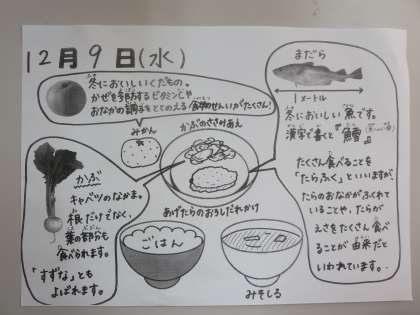 12月9日(水)
冬においしいくだもの。
かぜを予防するビタミンCや
おなかの調子をととのえる食物せんいがたくさん!
みかん
かぶのささみあえ
まだら
1メートル
冬においしい魚です。
漢字で書くと『鱈』
たくさん食べることを
「たらふく」といいますが、
たらのおなかがふくれて
いることや、たらが
えさをたくさん食べ
ることが由来だと
いわれています。
かぶ
キャベツのなかま。
根だけでなく、
葉の部分も
食べられます。
「すずな」とも
よばれます。
あげたらのおろしだれかけ
ごはん
みそしる